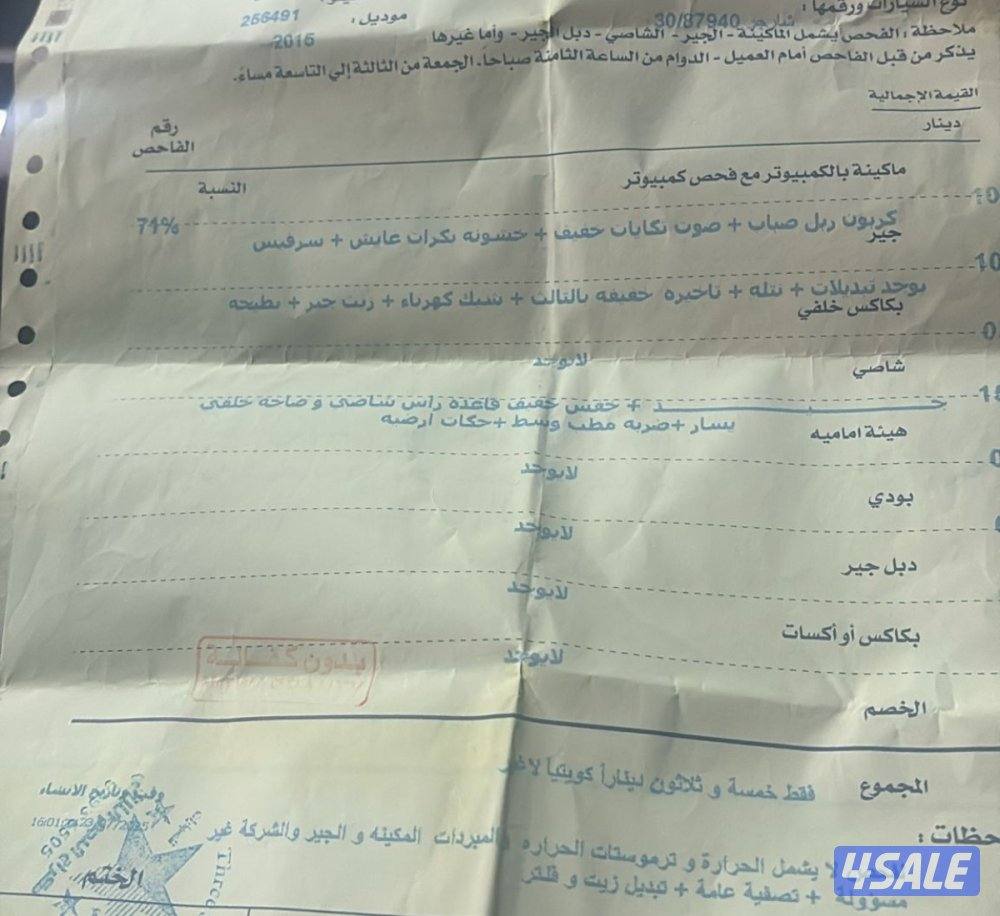 نوع السيارات ورقمها :
تشارجر 30/87940
موديل : 266491
2015
ملاحظة : الفحص يشمل الماكينة - الجير - الشاصي - دبل الجير - وأما غيرها
يذكر من قبل الفاحص أمام العميل - الدوام من الساعة الثامنة صباحاً. الجمعة من الثالثة إلى التاسعة مساءً.
القيمة الإجمالية
دينار
رقم الفاحص
ماكينة بالكمبيوتر مع فحص كمبيوتر
النسبة
10
71%
كربون ربل صباب + صوت تكايات خفيف + خشونه بكرات عايش + سرفيس
جير
10
يوجد تبديلات + نتله + تاخيره خفيفه بالثالث + شيك كهرباء + زيت جير + بطيحه
بكاكس خلفي
0
لايوجد
شاصي
جيد + خفس خفيف قاعده راس شاصي وصاجه خلفي
يسار + ضربه مطب وسط + حكات ارضيه
هيئة اماميه
0
لايوجد
بودي
لايوجد
دبل جير
لايوجد
بكاكس أو أكسات
لايوجد
بدون كفالة
الخصم
المجموع
فقط خمسة و ثلاثون ديناراً كويتياً لاغير
وقت وتاريخ الانشاء
حظات :
لا يشمل الحرارة و ترموستات الحراره والمبردات المكينه و الجير والشركة غير
مسؤولة + تصفية عامة + تبديل زيت و فلتر
الختم
4SALE